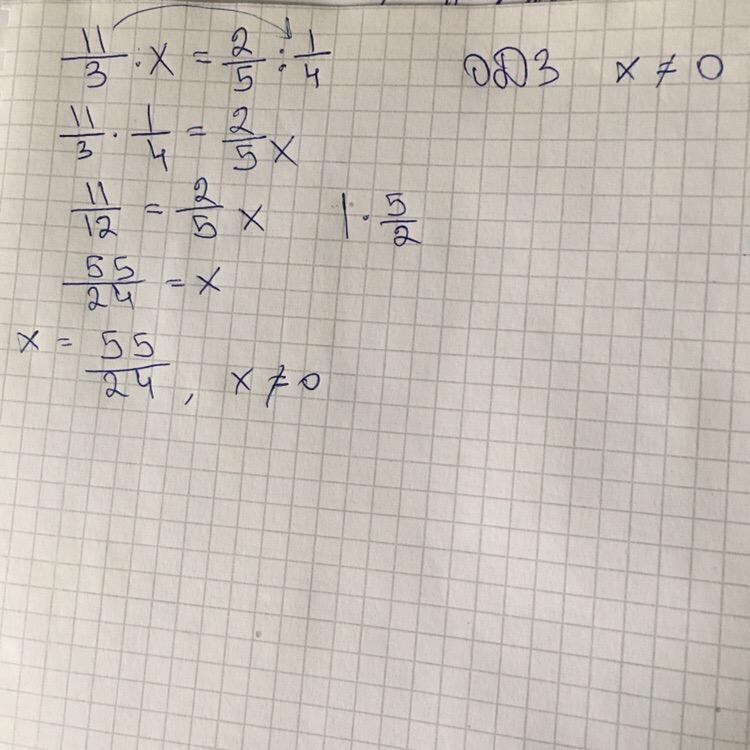 11/3 : x = 2/5 : 1/4 ОДЗ x ≠ 0
11/3 · 1/4 = 2/5 x
11/12 = 2/5 x | · 5/2
55/24 = x
x = 55/24 , x ≠ 0